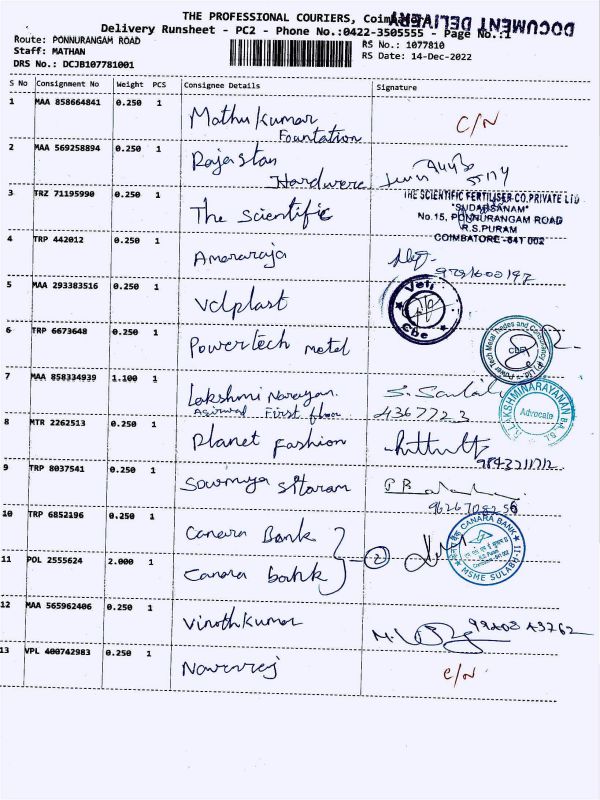 THE PROFESSIONAL COURIERS, Coimbatore
DOCUMENT DELIVERY
Delivery Runsheet - PC2 - Phone No.:0422-3505555 - Page No.:1
Route: PONNURANGAM ROAD
RS No.: 1077810
Staff: MATHAN
RS Date: 14-Dec-2022
DRS No.: DCJB107781001
S No Consignment No Weight PCS Consignee Details Signature
1 MAA 858664841 0.250 1 Mathu kumar C/N
Fountation
2 MAA 569258894 0.250 1 Rajastan
Hardwere
3 TRZ 71195990 0.250 1 The Scientific
THE SCIENTIFIC FERTILISER CO. PRIVATE LTD
"SUDARSANAM"
No.15, PONNURANGAM ROAD
R.S.PURAM
COIMBATORE - 641 002
4 TRP 442012 0.250 1 Amararaja
5 MAA 293383516 0.250 1 Velplast
Cbe
6 TRP 6673648 0.250 1 Powertech metal
CBE
7 MAA 858334939 1.100 1 Lakshmi Narayan.
Agirwal First floor 4367723
R.L. LAKSHMINARAYANAN BA. BL
Advocate
8 MTR 2262513 0.250 1 Planet fashion
9843211712
9 TRP 8037541 0.250 1 Sowmya sitaram
9626708256
10 TRP 6852196 0.250 1 Canara Bank
CANARA BANK
MSME SULABH-II
2
11 POL 2555624 2.000 1 Canara bank
12 MAA 565962406 0.250 1 Vinothkumar
99403 43762
13 VPL 400742983 0.250 1 Navinraj C/N